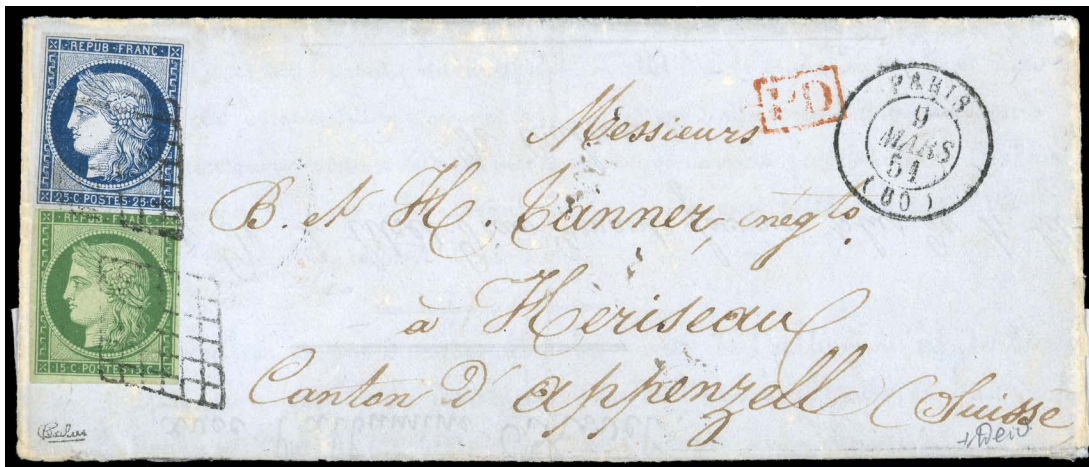 REPUB·FRANC
25·C·POSTES·25·C
REPUB·FRANC
15·C·POSTES·15·C
PD
PARIS
9
MARS
51
(60)
Messieurs
B. et H. Tanner, negts.
à Heriseau
Canton d'appenzell (Suisse